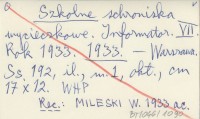 Szkolne schroniska
wycieczkowe. Informator. VII.
Rok 1933. 1933. — Warszawa.
Ss. 192, il., m. 1, okł., cm
17 x 12. WHP
Rec.: MILESKI W. 1933 ac.